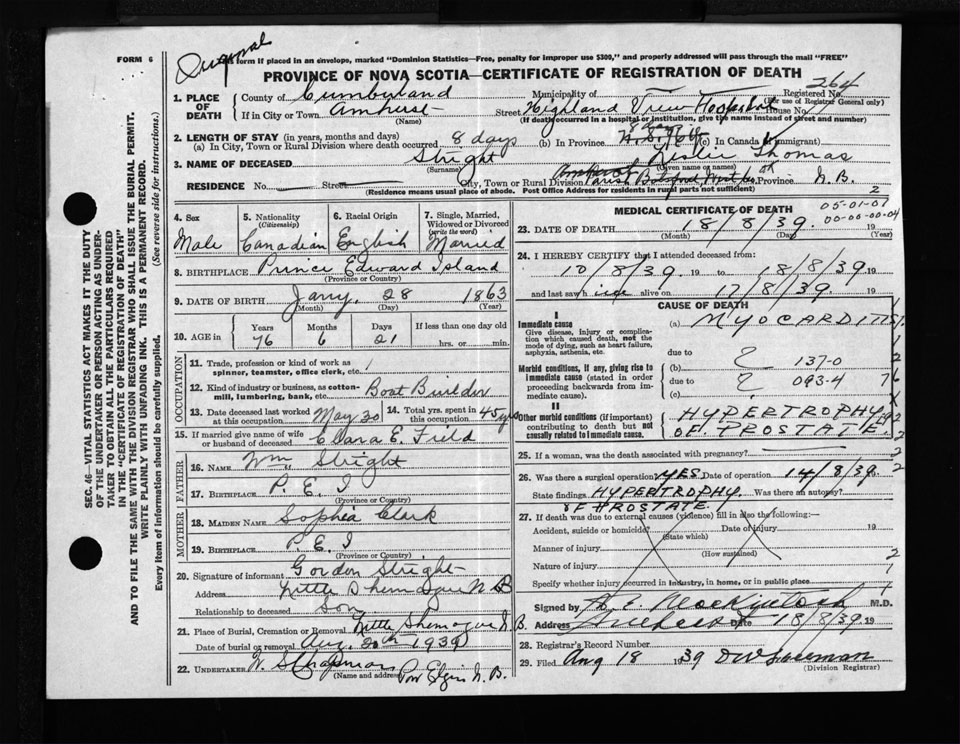 Original
FORM 6
a form if placed in an envelope, marked "Dominion Statistics—Free, penalty for improper use $300," and properly addressed will pass through the mail "FREE"
PROVINCE OF NOVA SCOTIA—CERTIFICATE OF REGISTRATION OF DEATH
264
SEC. 46—VITAL STATISTICS ACT MAKES IT THE DUTY
OF THE UNDERTAKER OR PERSON ACTING AS UNDER-
TAKER TO OBTAIN ALL THE PARTICULARS REQUIRED
IN THE "CERTIFICATE OF REGISTRATION OF DEATH"
AND TO FILE THE SAME WITH THE DIVISION REGISTRAR WHO SHALL ISSUE THE BURIAL PERMIT.
WRITE PLAINLY WITH UNFADING INK. THIS IS A PERMANENT RECORD.
Every item of information should be carefully supplied. (See reverse side for instructions.)
1. PLACE OF DEATH
County of Cumberland Municipality of Registered No.
(For use of Registrar General only)
If in City or Town Amherst Street Highland View Hospital House No.
(Name) (If death occurred in a hospital or institution, give the name instead of street and number)
2. LENGTH OF STAY (in years, months and days)
(a) In City, Town or Rural Division where death occurred 8 days (b) In Province 8 days (c) In Canada (if immigrant)
3. NAME OF DECEASED Stright Leslie Thomas
(Surname) (Given name or names)
RESIDENCE No. Street City, Town or Rural Division Parish Botsford, West Co. Province N.B.
(Residence means usual place of abode. Post Office Address for residents in rural parts not sufficient) 2
4. Sex
Male
5. Nationality
(Citizenship)
Canadian
6. Racial Origin
English
7. Single, Married, Widowed or Divorced
(write the word)
Married
8. BIRTHPLACE Prince Edward Island
(Province or Country)
9. DATE OF BIRTH Jany. 28 1863
(Month) (Day) (Year)
10. AGE in Years Months Days If less than one day old
76 6 21 hrs. or min.
OCCUPATION
11. Trade, profession or kind of work as
spinner, teamster, office clerk, etc.
12. Kind of industry or business, as cotton-
mill, lumbering, bank, etc. Boat Builder
13. Date deceased last worked at this occupation May 30 14. Total yrs. spent in this occupation 45 yrs
15. If married give name of wife
or husband of deceased Clara E. Field
FATHER
16. NAME Wm Stright
17. BIRTHPLACE P. E. I
(Province or Country)
MOTHER
18. MAIDEN NAME Sophia Clark
19. BIRTHPLACE P. E. I
(Province or Country)
20. Signature of informant Gordon Stright
Address Little Shemogue N B
Relationship to deceased Son
21. Place of Burial, Cremation or Removal Little Shemogue N B.
Date of burial or removal Aug. 20th 1939
22. UNDERTAKER W. S. Chapman
(Name and address) Port Elgin N. B.
MEDICAL CERTIFICATE OF DEATH
05-01-07
00-00-00-04
23. DATE OF DEATH 18/8/39. 19
(Month) (Day) (Year)
24. I HEREBY CERTIFY that I attended deceased from:
10/8/39. 19 to 18/8/39. 19
and last saw him alive on 17/8/39. 19
CAUSE OF DEATH
I
Immediate cause
Give disease, injury or complica-
tion which caused death, not the
mode of dying, such as heart failure,
asphyxia, asthenia, etc.
(a) MYOCARDITIS
due to
(b) ? 137-0
Morbid conditions, if any, giving rise to
immediate cause (stated in order
proceeding backwards from im-
mediate cause).
due to
(c) ? 093-4
II
Other morbid conditions (if important)
contributing to death but not
causally related to immediate cause.
HYPERTROPHY
OF PROSTATE.
25. If a woman, was the death associated with pregnancy?
26. Was there a surgical operation? YES. Date of operation 14/8/39.
State findings HYPERTROPHY Was there an autopsy?
OF PROSTATE.
27. If death was due to external causes (violence) fill in also the following:—
Accident, suicide or homicide? Date of injury 19
(State which)
Manner of injury
(How sustained)
Nature of injury
Specify whether injury occurred in industry, in home, or in public place
Signed by Mackintosh M.D.
Address Amherst Date 18/8/39. 19
28. Registrar's Record Number
29. Filed Aug 18 1939
(Division Registrar)